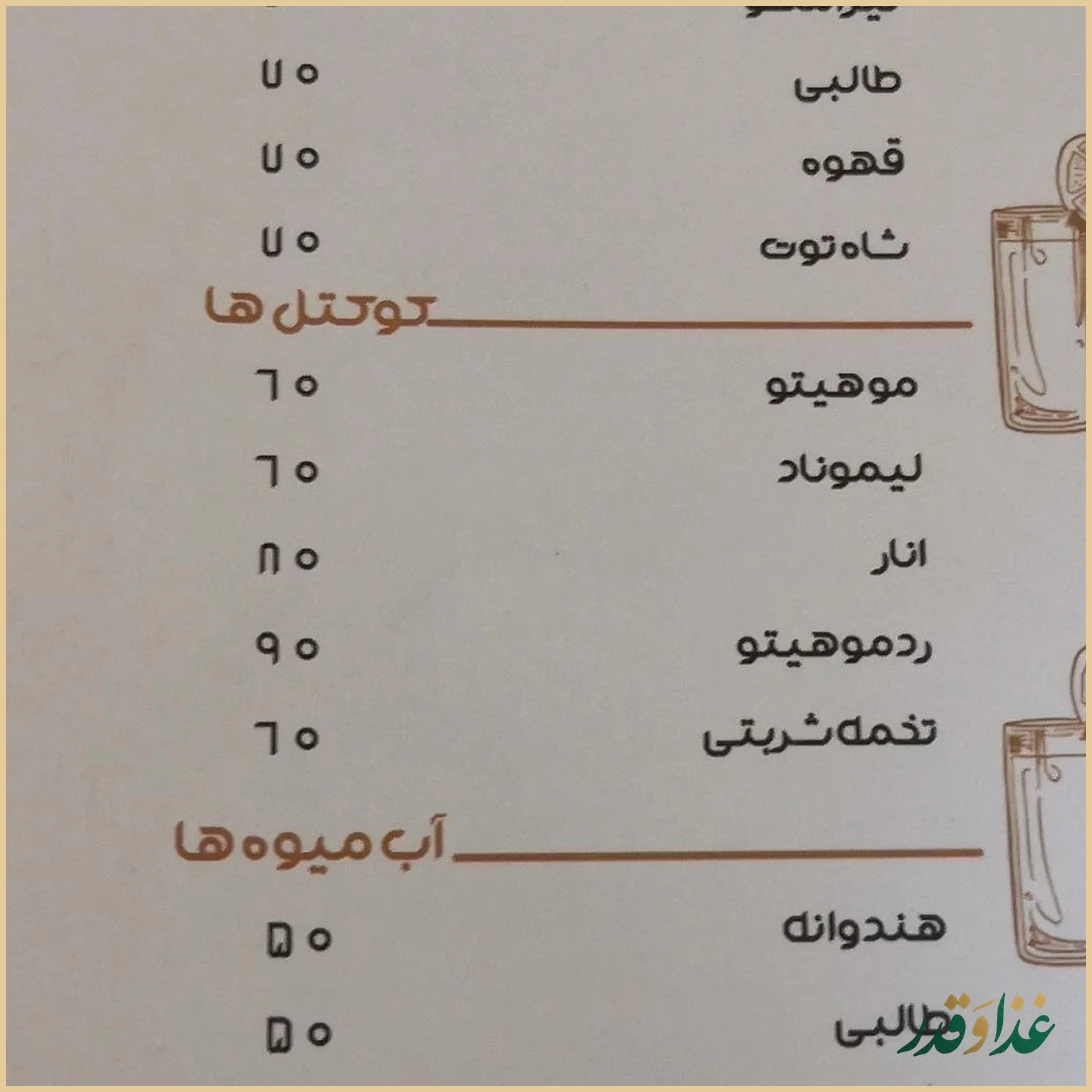 طالبی ۷۰
قهوه ۷۰
شاه توت ۷۰
کوکتل ها
موهیتو ٦۰
لیموناد ٦۰
انار ۸۰
ردموهیتو ۹۰
تخمه شربتی ٦۰
آب میوه ها
هندوانه ۵۰
طالبی ۵۰
غذا و قدر